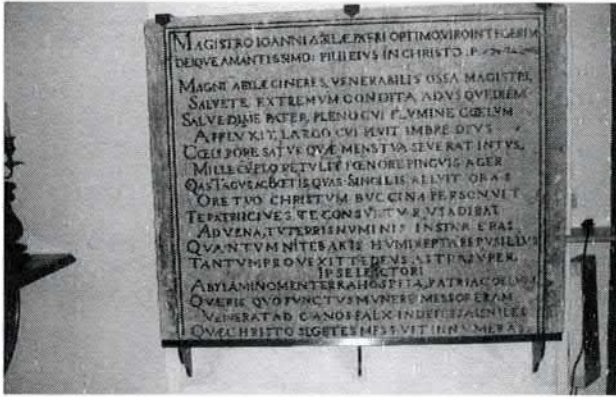 MAGISTRO IOANNI AVILÆ PATRI OPTIMO VIRO INTEGERIM
DEIQVE AMANTISSIMO: FILII EIVS IN CHRISTO . P.
MAGNI ABYLÆ CINERES, VENERABILIS OSSA MAGISTRI,
SALVETE, EXTREMVM CONDITA AD VSQVE DIEM.
SALVE DIVE PATER, PLENO CVI FLVMINE CŒLVM
AFFLVXIT, LARGO CVI PLVIT IMBRE DEVS
CŒLI RORE SATVR QVÆ MENS TVA SEVERAT INTVS,
MILLECVPLO RETVLIT FŒNORE PINGVIS AGER
QAS TAGVS AC BŒTIS QVAS SINGILIS ALLVIT ORAS
ORE TVO CHRISTVM BVCCINA PERSONVIT
TE PATRII CIVES, TE CONSVLTVRVS ADIBAT
ADVENA, TV TERRIS NVMINIS INSTAR ERAS
QVANTVM NITEBARIS HVMI REPTARE PVSILLVS
TANTVM PROVEXIT TE DEVS ASTRA SVPER.
IPSE LECTORI
ABYLA MI NOMEN TERRA HOSPITA, PATRIA CŒLVM
QVÆRIS QVO FVNCTVS MVNERE MESSOR ERAM
VENERAT AD CANOS FALX INDEFESSA SENILES
QVÆ CHRISTO SEGETES MESSVIT INNVMERAS